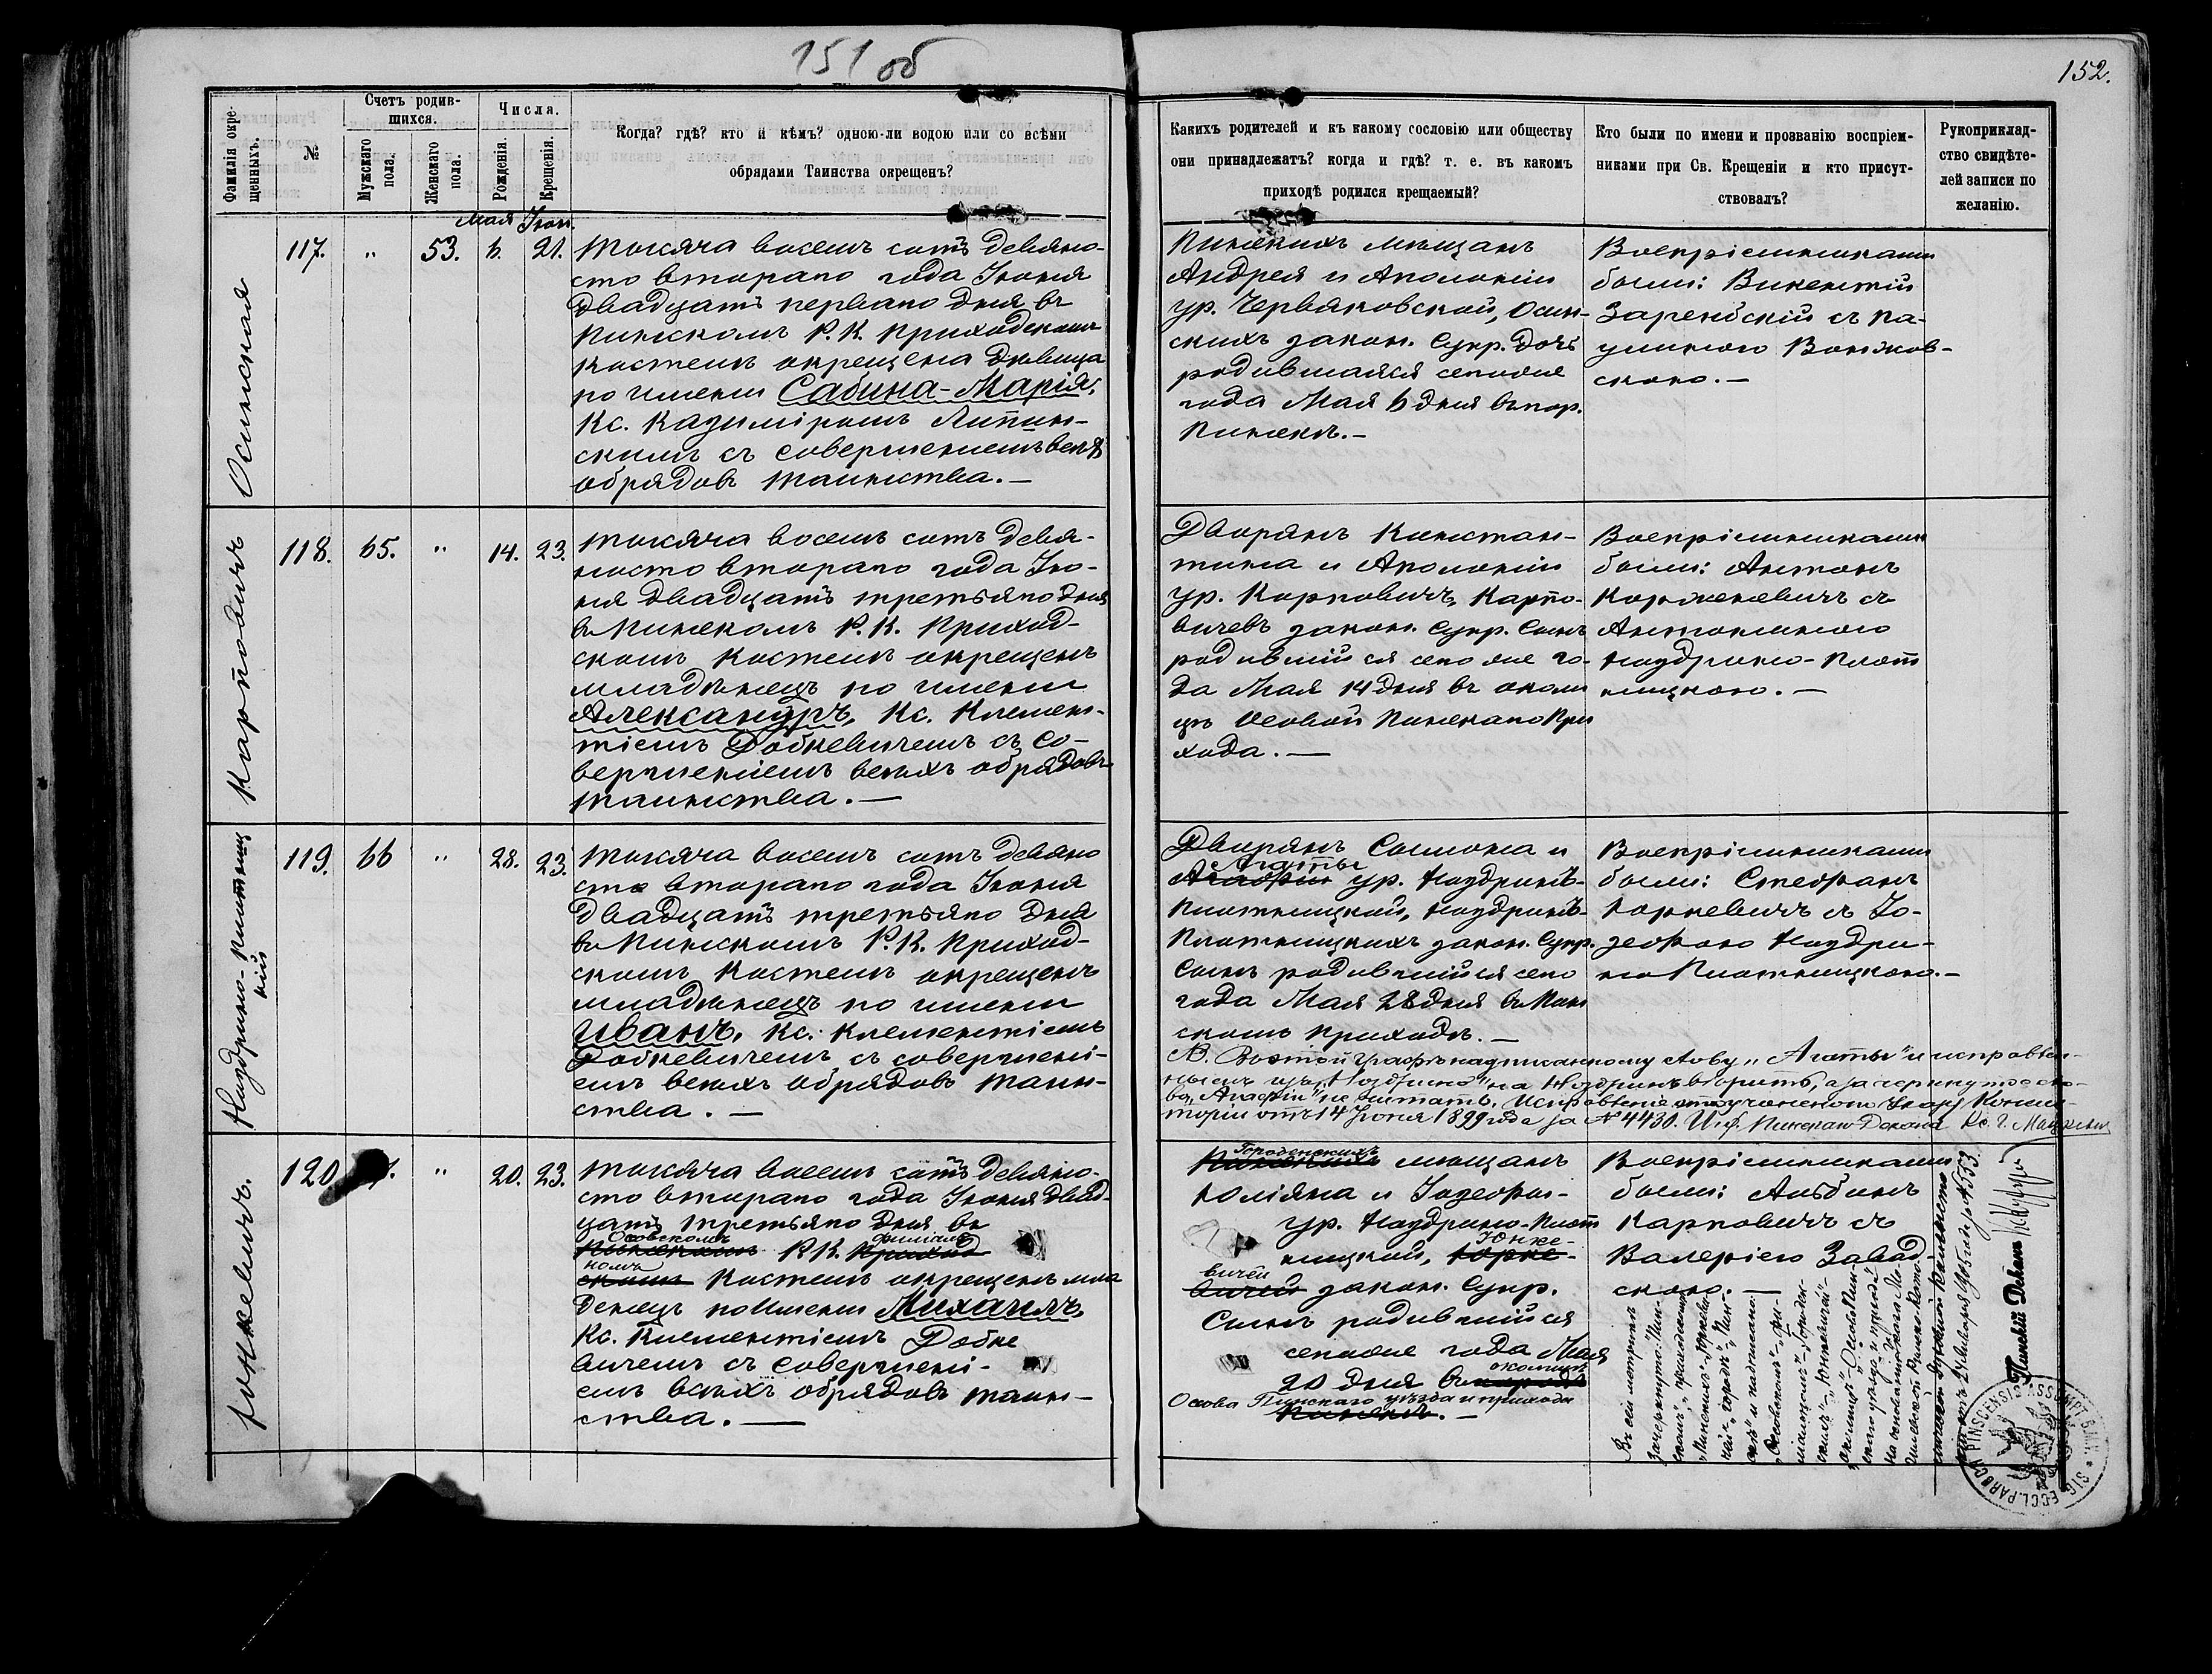 151 об
152.
Фамилія окре-
щенныхъ.
№
Счетъ родив-
шихся.
Мужскаго
пола.
Женскаго
пола.
Числа.
Рожденія.
Крещенія.
Когда? гдѣ? кто и кѣмъ? одною-ли водою или со всѣми
обрядами Таинства окрещенъ?
Какихъ родителей и къ какому сословію или обществу
они принадлежатъ? когда и гдѣ? т. е. въ какомъ
приходѣ родился крещаемый?
Кто были по имени и прозванію воспріем-
никами при Св. Крещеніи и кто присут-
ствовалъ?
Рукоприклад-
ство свидѣте-
лей записи по
желанію.
Мая Іюн.
Осинская
117. " 53. 6. 21.
Тысяча восемь сотъ девяно-
сто втораго года Іюня
двадцать перваго дня въ
Пинскомъ Р. К. Приходскомъ
костелѣ окрещена дѣвица
по имени Сабина-Марія,
Кс. Казиміромъ Липин-
скимъ съ совершеніемъ всѣхъ
обрядовъ таинства.—
Пинскихъ мѣщанъ
Андрея и Аполоніи
ур. Червяковской, Осин-
скихъ закон. супр. дочь
родившаяся сегоже
года Мая 6 дня въ гор.
Пинскѣ.—
Воспріемниками
были: Викентій
Зарембскій съ Па-
улиною Вонжов-
скою.—
Карповичъ
118. 65. " 14. 23.
Тысяча восемь сотъ девя-
носто втораго года Ію-
ня двадцать третьяго дня
въ Пинскомъ Р. К. Приход-
скомъ костелѣ окрещенъ
младенецъ по имени
Александръ, Кс. Клемен-
тіемъ Добкевичемъ съ со-
вершеніемъ всѣхъ обрядовъ
таинства.—
Дворянъ Констан-
тина и Аполоніи
ур. Карповичъ, Карпо-
вичевъ закон. супр. сынъ
родившійся сего же го-
да Мая 14 дня въ околи
цѣ Особой Пинскаго При
хода.—
Воспріемниками
были: Антонъ
Корженевичъ съ
Антониною
Наздрино-Плот
ницкою.—
Наздрино-Плотниц
кій
119. 66 " 28. 23.
Тысяча восемь сотъ девяно
сто втораго года Іюня
двадцать третьяго дня
въ Пинскомъ Р. К. Приход-
скомъ костелѣ окрещенъ
младенецъ по имени
Иванъ, Кс. Клементіемъ
Добкевичемъ съ совершені-
емъ всѣхъ обрядовъ таин-
ства.—
Дворянъ Симона и
Агаты
Агафіи ур. Наздринъ-
Плотницкой, Наздринъ-
Плотницкихъ закон. супр.
сынъ родившійся сего
года Мая 28 дня въ Пин
скомъ приходѣ.—
Воспріемниками
были: Стефанъ
Юркевичъ съ Іо-
зефою Наздри-
но Плотницкою.—
"Агаты" и исправлен-
"Агафіи" не читать.
торіи отъ 14 Іюня 1899 года за № 4430.
Юнкевичъ.
120 " 20. 23.
Тысяча восемь сотъ девяно-
сто втораго года Іюня двад-
цать третьяго дня въ
Осовскомъ филіаль
Пинскомъ Р. К. Приход
номъ
скомъ костелѣ окрещенъ мла
денецъ по имени Михаилъ,
Кс. Клементіемъ Добке
вичемъ съ совершені-
емъ всѣхъ обрядовъ таин-
ства.—
Городенскихъ
Пинскихъ мѣщанъ
Юліяна и Іозефы-
ур. Наздрино-Плот
Юнке-
ницкой, Юрке-
вичей
вичей закон. супр.
сынъ родившійся
сегоже года Мая
околицѣ
20 дня въ городѣ
Осова Пинскаго уѣзда и прихода
Пинскѣ.—
Воспріемниками
были: Альбинъ
Карповичъ съ
Валеріею Завад-
скою.—
Пинскій Деканъ
SIG. ECCL. PAROCH. PINSCENSIS ASSUMPT. B.M.V.